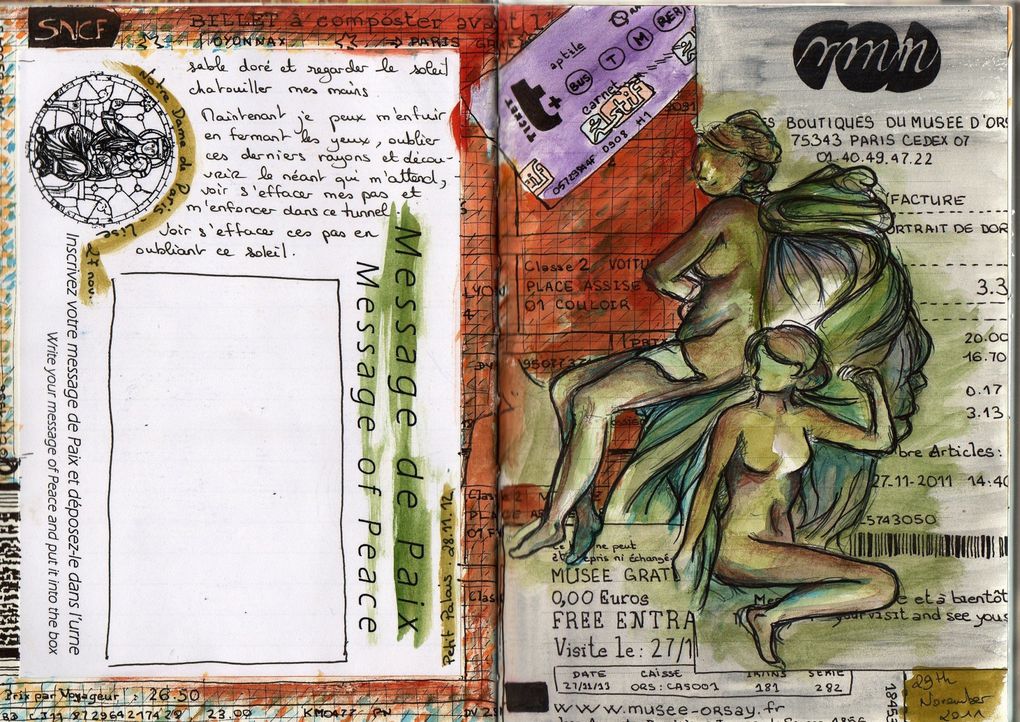 SNCF
BILLET à composter avant l'
OYONNAX → PARIS
sable doré et regarder le soleil
chatouiller mes mains
Maintenant je peux m'enfuir
en fermant les yeux, oublier
ces derniers rayons et décou-
vrir le néant qui m'attend,
voir s'effacer mes pas et
m'enfoncer dans ce tunnel
Voir s'effacer ces pas en
oubliant ce soleil.
Notre Dame de Paris - Lise
27 nov.
Inscrivez votre message de Paix et déposez-le dans l'urne
Write your message of Peace and put it into the box
Message de Paix
Message of Peace
Petit Palais! 28.11.12
Prix par Voyageur : 26.50
23.00
TICKET t+
aptile
BUS T M RER
carnet
stif
0908 M1
Classe 2 VOITU
PLACE ASSISE
01 COULOIR
rmn
S BOUTIQUES DU MUSEE D'ORS
75343 PARIS CEDEX 07
01.40.49.47.22
FACTURE
ORTRAIT DE DOR
3.3
20.00
16.70
0.17
3.13
bre Articles:
27-11-2011 14:40
5743050
pris ni échangé
MUSEE GRATU
0,00 Euros
FREE ENTRA
Visite le: 27/1
e et à bientôt
your visit and see yous
DATE CAISSE SERIE
27/11/13 ORS:CAS001 181 292
www.musee-orsay.fr
29th
November
2011